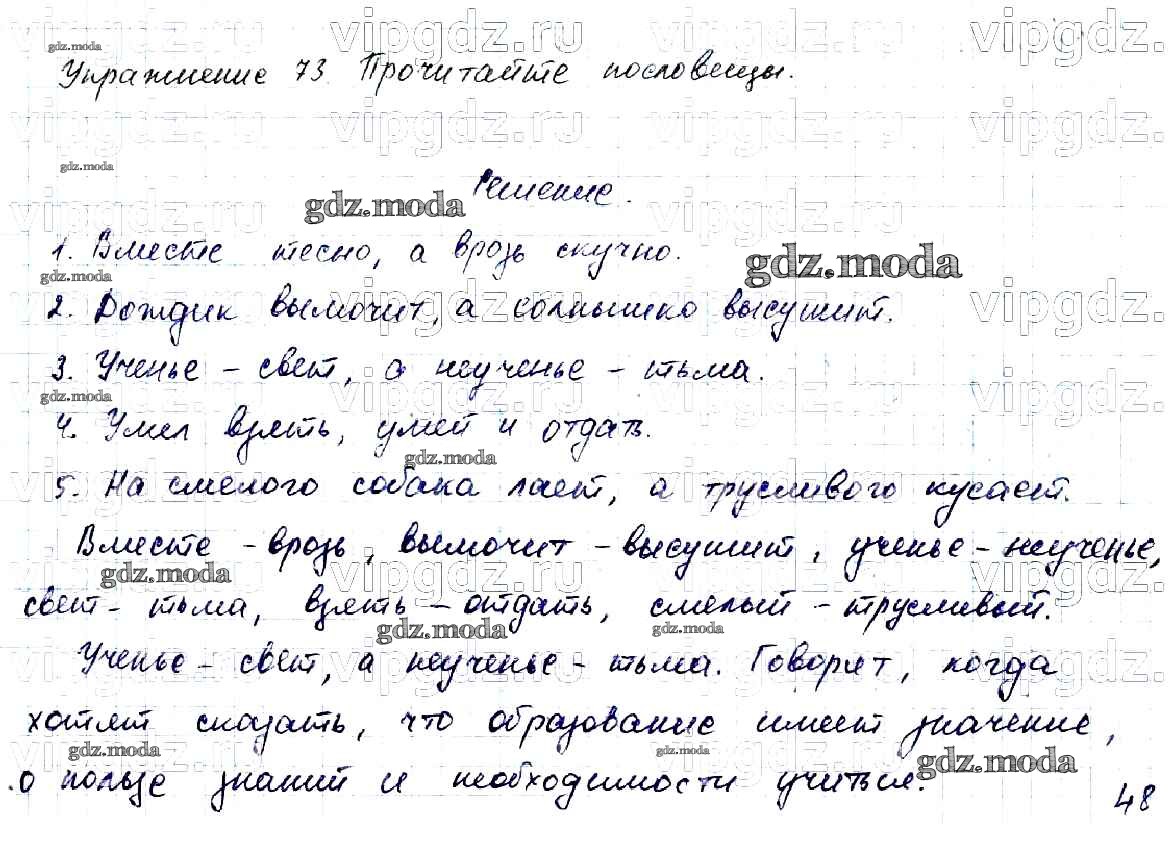 Упражнение 73. Прочитайте пословицы.
Решение.
1. Вместе тесно, а врозь скучно.
2. Дождик вымочит, а солнышко высушит.
3. Ученье – свет, а неученье – тьма.
4. Умел взять, умей и отдать.
5. На смелого собака лает, а трусливого кусает.
Вместе – врозь, вымочит – высушит, ученье – неученье,
свет – тьма, взять – отдать, смелый – трусливый.
Ученье – свет, а неученье – тьма. Говорят, когда
хотят сказать, что образование имеет значение,
о пользе знаний и необходимости учиться.
48